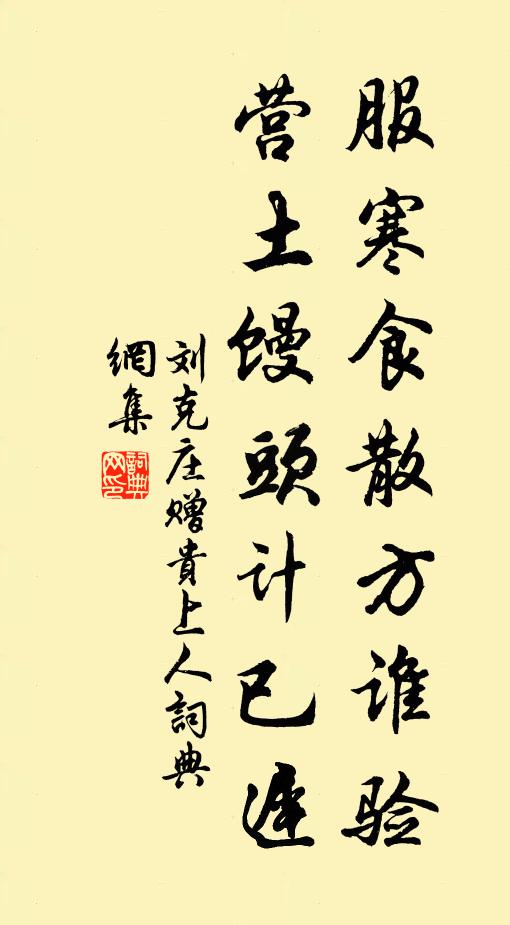 服寒食散方谁验
营土馒頭计已遲
刘克庄赠貴上人詞典
網集
詞典网印